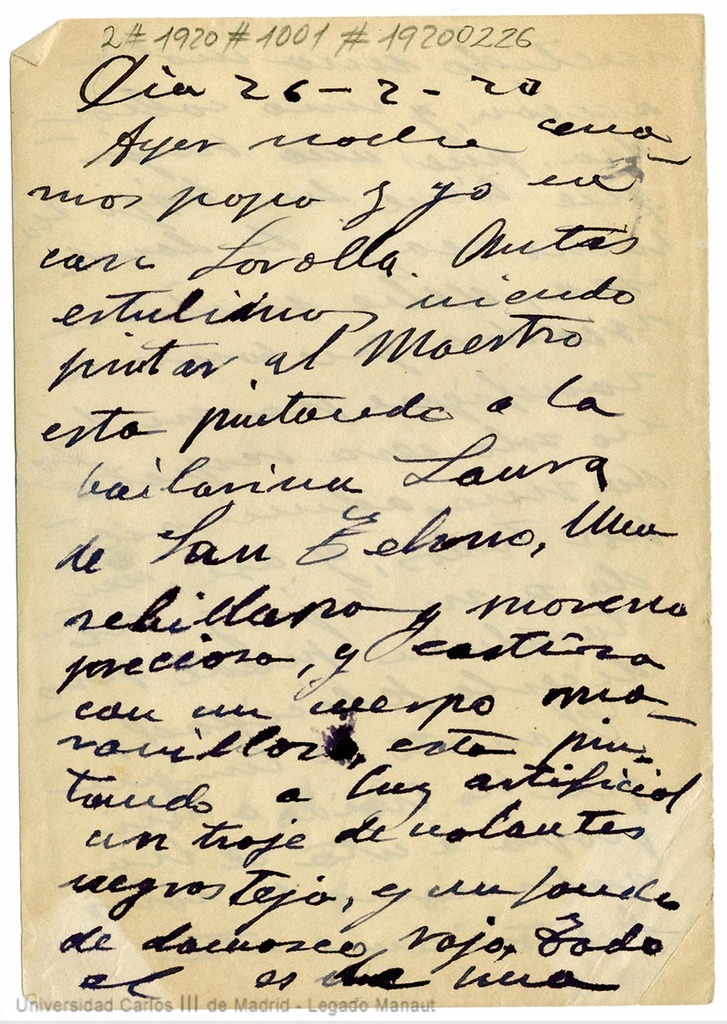 2# 1920 # 1001 # 19200226
Dia 26-2-20
Ayer noche cena-
mos papa y yo en
casa Sorolla. Antes
estubimos viendo
pintar al Maestro
esta pintando a la
bailarina Laura
de San Telmo, una
sebillana y morena
preciosa, y castiza
con un cuerpo ma-
ravilloso, esta pin-
tando a luz artificial
un traje de volantes
negros teja, y un fondo
de damasco rojo, todo
el es de una
Universidad Carlos III de Madrid - Legado Manaut